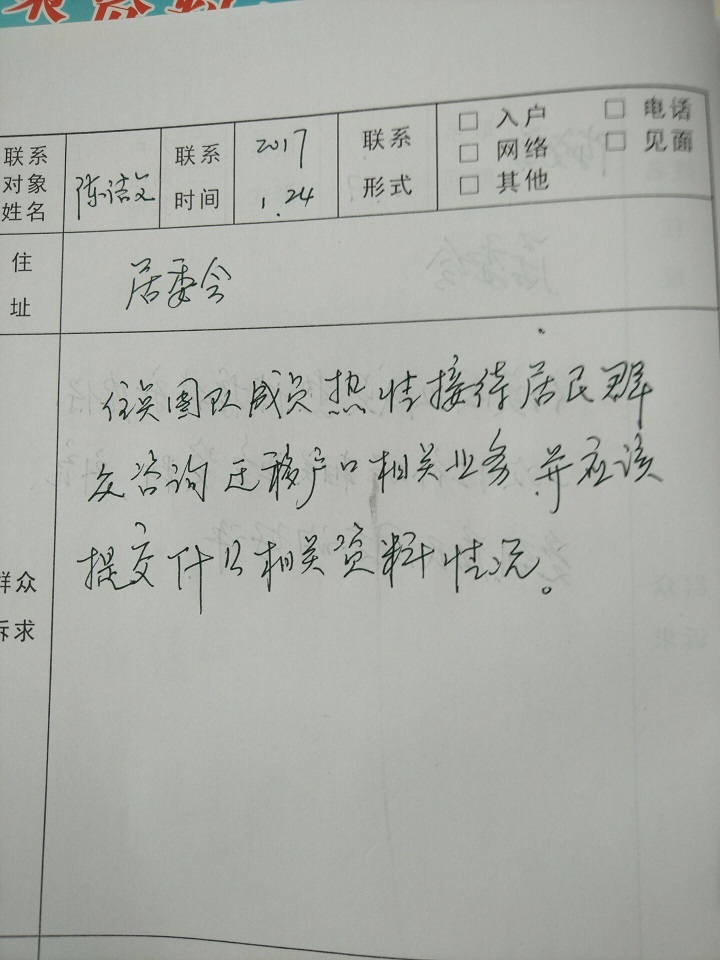 联系对象姓名 陈洁文 联系时间 2017 1.24 联系形式 □ 入户 □ 电话
□ 网络 □ 见面
□ 其他
住址 居委会
群众诉求
住吴团队成员热情接待居民群
众咨询迁移户口相关业务并应该
提交什么相关资料情况。